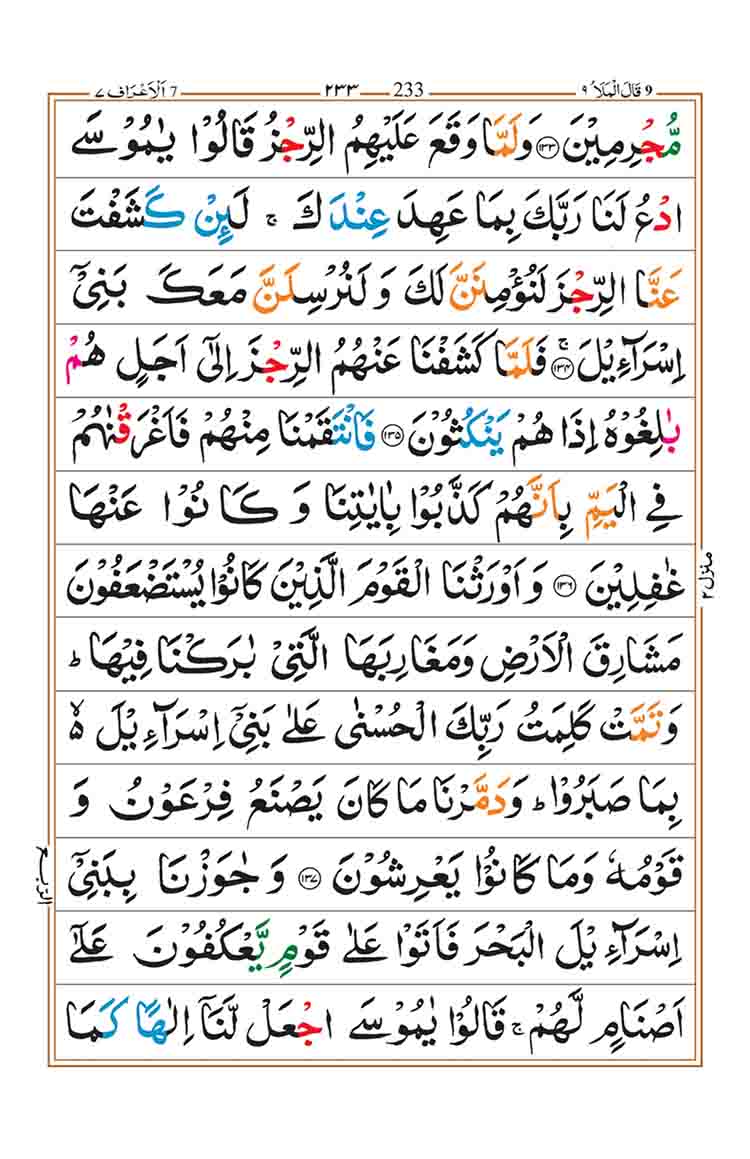 ٩ قَالَ الْمَلَاُ 9 233 ٢٣٣ 7 اَلْاَعْرَاف ٧
مُّجْرِمِيْنَ ١٣٣ وَلَمَّا وَقَعَ عَلَيْهِمُ الرِّجْزُ قَالُوْا يٰمُوْسَى
ادْعُ لَنَا رَبَّكَ بِمَا عَهِدَ عِنْدَكَ ۚ لَئِنْ كَشَفْتَ
عَنَّا الرِّجْزَ لَنُؤْمِنَنَّ لَكَ وَ لَنُرْسِلَنَّ مَعَكَ بَنِيْٓ
اِسْرَآءِيْلَ ۚ ١٣٤ فَلَمَّا كَشَفْنَا عَنْهُمُ الرِّجْزَ اِلٰٓى اَجَلٍ هُمْ
بٰلِغُوْهُ اِذَا هُمْ يَنْكُثُوْنَ ١٣٥ فَانْتَقَمْنَا مِنْهُمْ فَاَغْرَقْنٰهُمْ
فِي الْيَمِّ بِاَنَّهُمْ كَذَّبُوْا بِاٰيٰتِنَا وَ كَانُوْا عَنْهَا
غٰفِلِيْنَ ١٣٦ وَ اَوْرَثْنَا الْقَوْمَ الَّذِيْنَ كَانُوْا يُسْتَضْعَفُوْنَ
مَشَارِقَ الْاَرْضِ وَمَغَارِبَهَا الَّتِيْ بٰرَكْنَا فِيْهَا ؕ
وَتَمَّتْ كَلِمَتُ رَبِّكَ الْحُسْنٰى عَلٰى بَنِيْٓ اِسْرَآءِيْلَ ۙ۬
بِمَا صَبَرُوْا ؕ وَدَمَّرْنَا مَا كَانَ يَصْنَعُ فِرْعَوْنُ وَ
قَوْمُهٗ وَمَا كَانُوْا يَعْرِشُوْنَ ١٣٧ وَ جٰوَزْنَا بِبَنِيْٓ
اِسْرَآءِيْلَ الْبَحْرَ فَاَتَوْا عَلٰى قَوْمٍ يَّعْكُفُوْنَ عَلٰٓى
اَصْنَامٍ لَّهُمْ ۚ قَالُوْا يٰمُوْسَى اجْعَلْ لَّنَآ اِلٰهًا كَمَا
منزل ٢
الربع